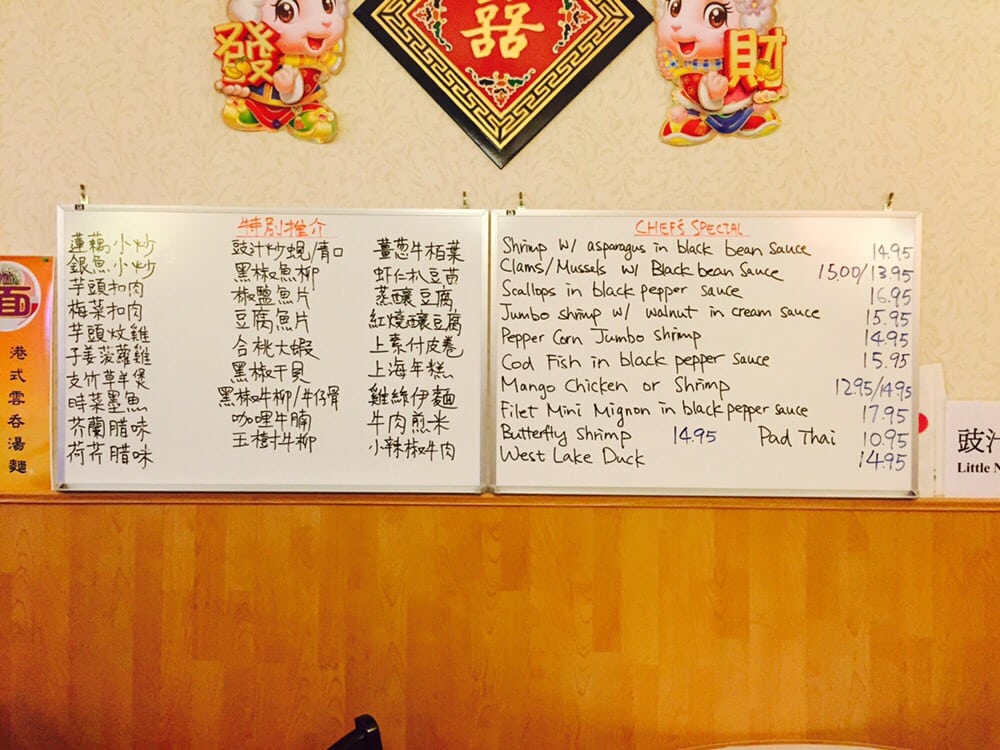 發
囍
財
特別推介
蓮藕小炒
銀魚小炒
芋頭扣肉
梅菜扣肉
芋頭炆雞
子姜菠蘿雞
支竹草羊煲
時菜墨魚
芥蘭腊味
荷芹腊味
豉汁炒蜆/青口
黑椒魚柳
椒鹽魚片
豆腐魚片
合桃大蝦
黑椒干貝
黑椒牛柳/牛仔骨
咖哩牛腩
玉樹牛柳
薑葱牛栢葉
虾仁扒豆苗
蒸釀豆腐
紅燒釀豆腐
上素付皮卷
上海年糕
雞絲伊麵
牛肉煎米
小辣椒牛肉
CHEF'S SPECIAL
Shrimp W/ asparagus in black bean sauce 14.95
Clams/Mussels w/ Black bean Sauce 15.00/13.95
Scallops in black pepper sauce 16.95
Jumbo shrimp w/ walnut in cream sauce 15.95
Pepper Corn Jumbo Shrimp 14.95
Cod Fish in black pepper sauce 15.95
Mango Chicken or Shrimp 12.95/14.95
Filet Mini Mignon in black pepper sauce 17.95
Butterfly Shrimp 14.95 Pad Thai 10.95
West Lake Duck 14.95
面
港式雲吞湯麵
豉汁
Little N